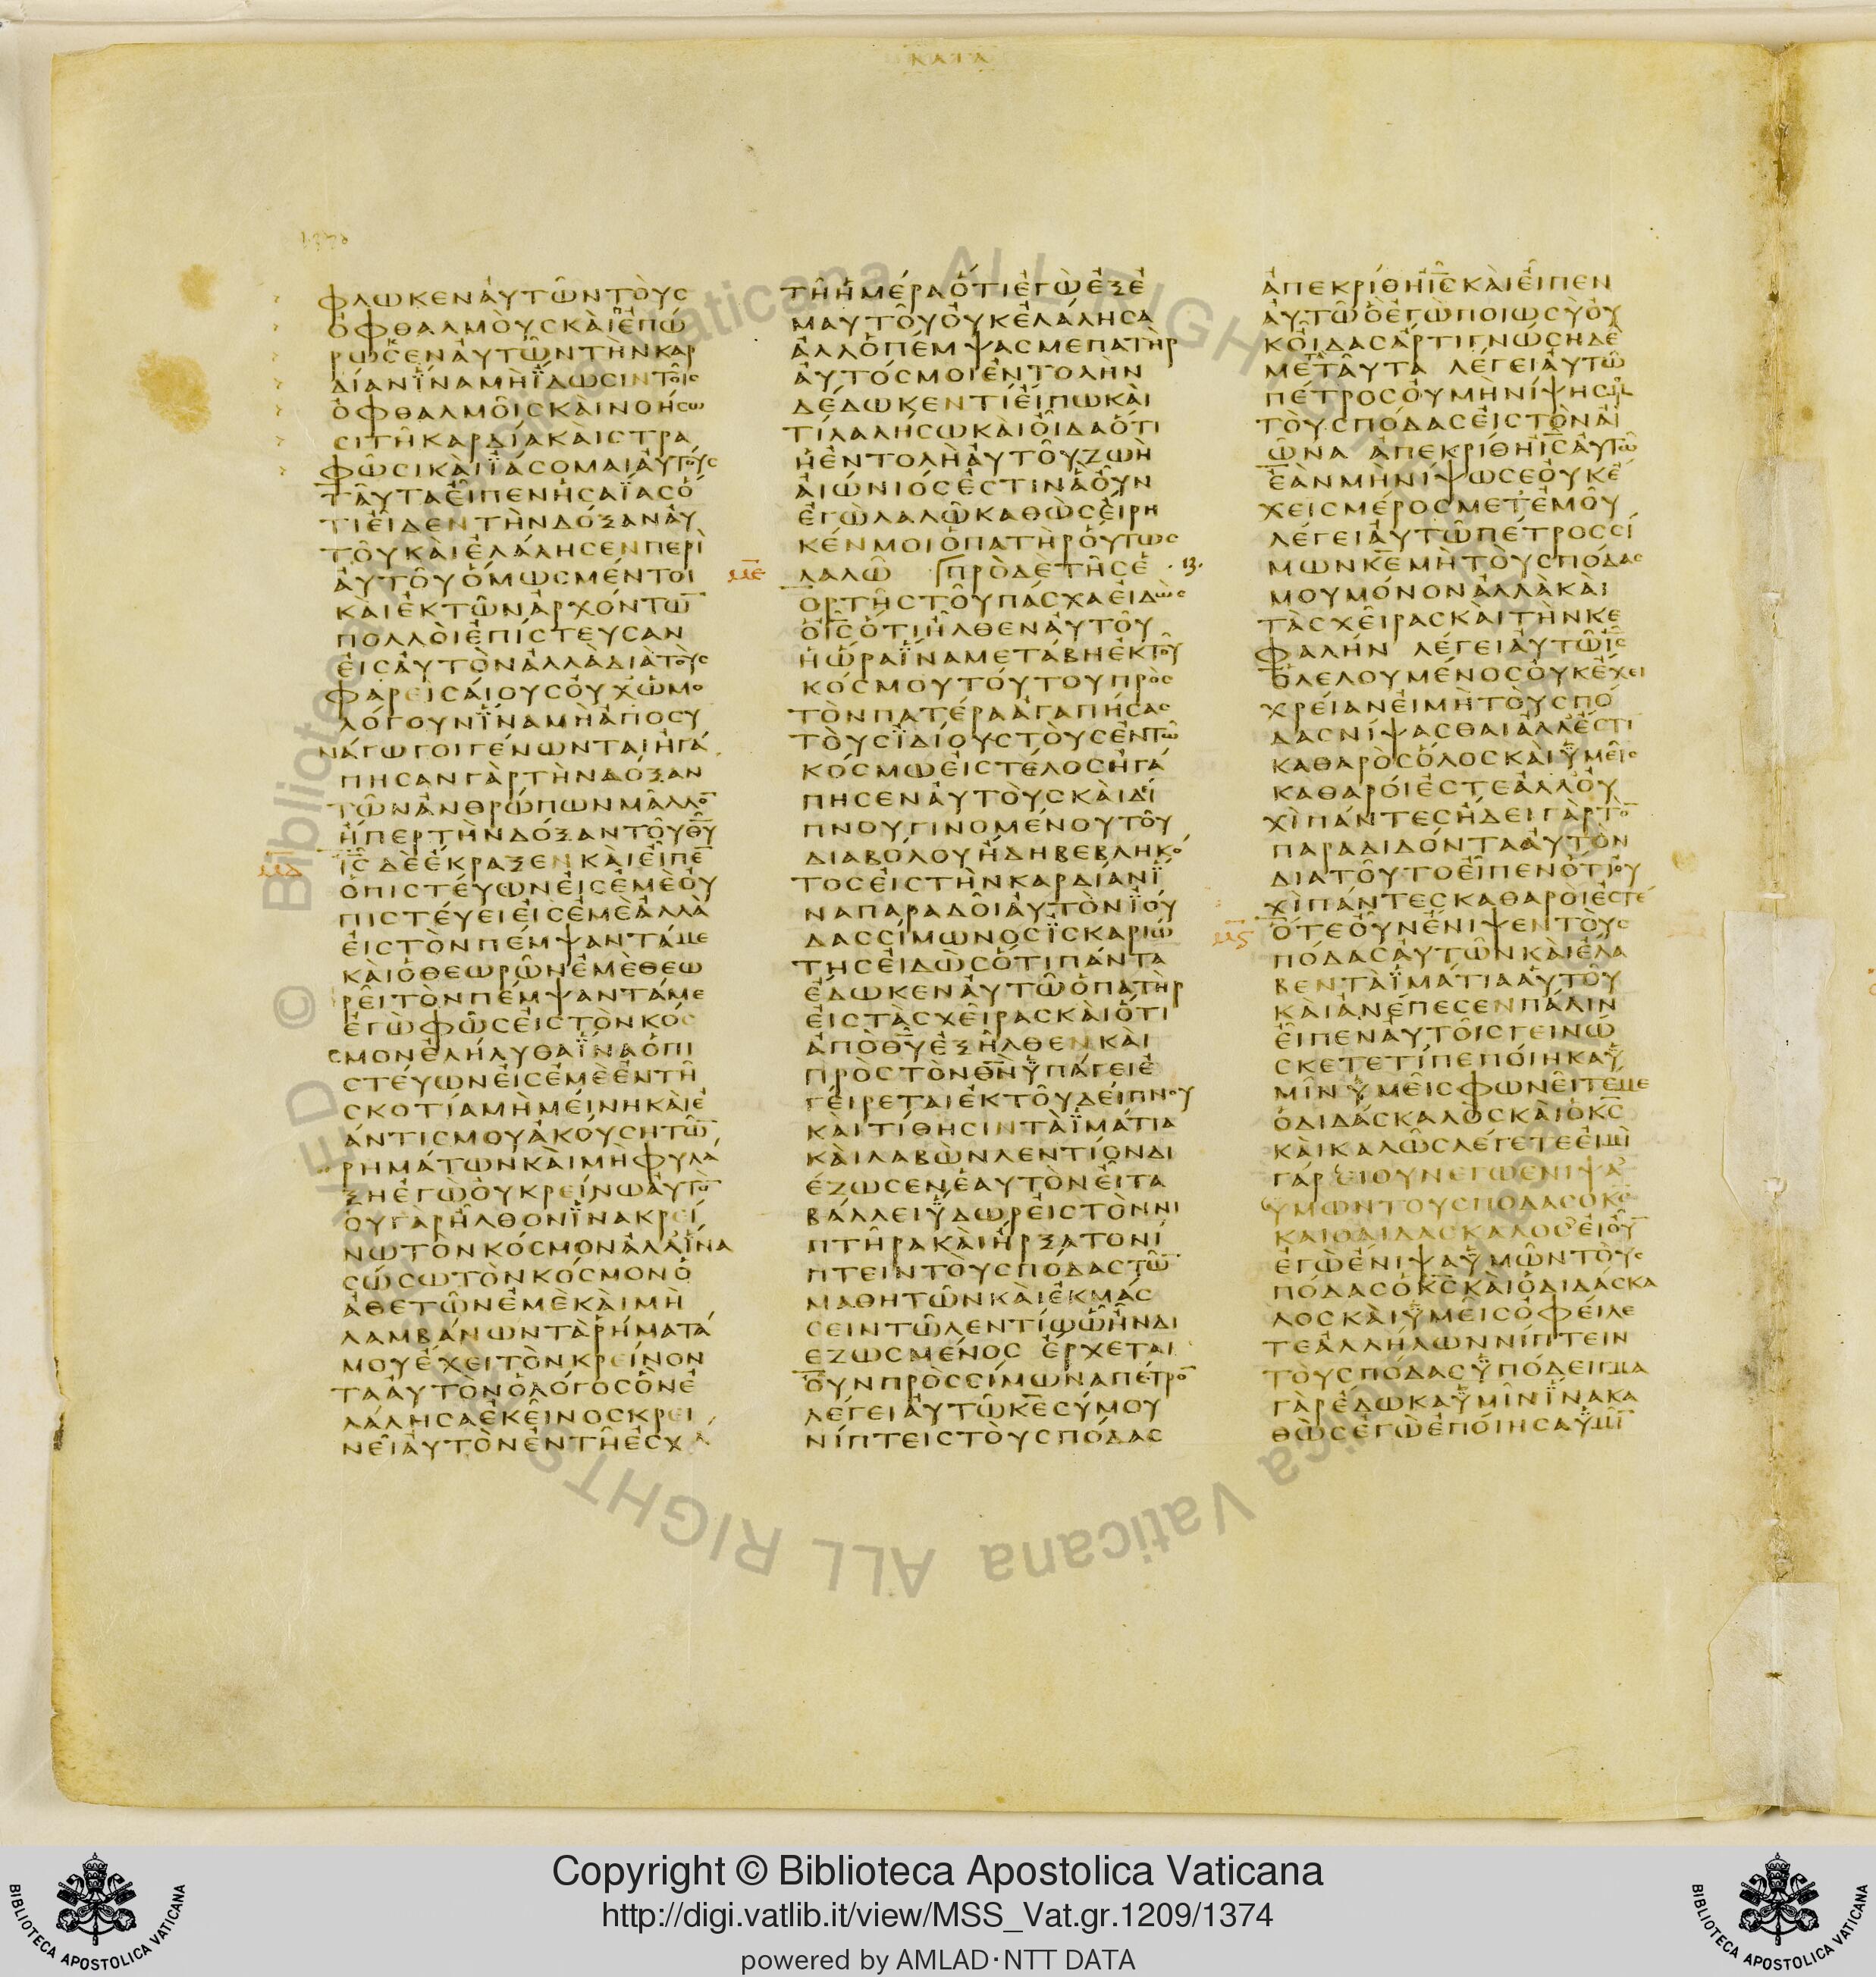 ΚΑΤΑ
ΦΛΩΚΕΝΑΥΤΩΝΤΟΥC
ΟΦΘΑΛΜΟΥCΚΑΙΕΠΩ
ΡΩCΕΝΑΥΤΩΝΤΗΝΚΑΡ
ΔΙΑΝΪΝΑΜΗΪΔΩCΙΝΤΟΙC
ΟΦΘΑΛΜΟΙCΚΑΙΝΟΗCΩ
CΙΤΗΚΑΡΔΙΑΚΑΙCΤΡΑ
ΦΩCΙΚΑΙΪΑCΟΜΑΙΑΥΤΟΥC
ΤΑΥΤΑΕΙΠΕΝΗCΑΪΑCΟ
ΤΙΕΙΔΕΝΤΗΝΔΟΞΑΝΑΥ
ΤΟΥΚΑΙΕΛΑΛΗCΕΝΠΕΡΙ
ΑΥΤΟΥΟΜΩCΜΕΝΤΟΙ
ΚΑΙΕΚΤΩΝΑΡΧΟΝΤΩ̅
ΠΟΛΛΟΙΕΠΙCΤΕΥCΑΝ
ΕΙCΑΥΤΟΝΑΛΛΑΔΙΑΤΟΥC
ΦΑΡΕΙCΑΙΟΥCΟΥΧΩΜΟ
ΛΟΓΟΥΝΪΝΑΜΗΑΠΟCΥ
ΝΑΓΩΓΟΙΓΕΝΩΝΤΑΙΗΓΑ
ΠΗCΑΝΓΑΡΤΗΝΔΟΞΑΝ
ΤΩΝΑΝΘΡΩΠΩΝΜΑΛΛΟ̅
ΗΠΕΡΤΗΝΔΟΞΑΝΤΟΥΘ̅Υ̅
Ι̅C̅ΔΕΕΚΡΑΞΕΝΚΑΙΕΙΠΕ̅
ΟΠΙCΤΕΥΩΝΕΙCΕΜΕΟΥ
ΠΙCΤΕΥΕΙΕΙCΕΜΕΑΛΛΑ
ΕΙCΤΟΝΠΕΜΨΑΝΤΑΜΕ
ΚΑΙΟΘΕΩΡΩΝΕΜΕΘΕΩ
ΡΕΙΤΟΝΠΕΜΨΑΝΤΑΜΕ
ΕΓΩΦΩCΕΙCΤΟΝΚΟC
ΜΟΝΕΛΗΛΥΘΑΪΝΑΟΠΙ
CΤΕΥΩΝΕΙCΕΜΕΕΝΤΗ
CΚΟΤΙΑΜΗΜΕΙΝΗΚΑΙΕ
ΑΝΤΙCΜΟΥΑΚΟΥCΗΤΩ̅
ΡΗΜΑΤΩΝΚΑΙΜΗΦΥΛΑ
ΞΗΕΓΩΟΥΚΡΕΙΝΩΑΥΤΟ̅
ΟΥΓΑΡΗΛΘΟΝΪΝΑΚΡΕΙ
ΝΩΤΟΝΚΟCΜΟΝΑΛΛΪΝΑ
CΩCΩΤΟΝΚΟCΜΟΝΟ
ΑΘΕΤΩΝΕΜΕΚΑΙΜΗ
ΛΑΜΒΑΝΩΝΤΑΡΗΜΑΤΑ
ΜΟΥΕΧΕΙΤΟΝΚΡΕΙΝΟΝ
ΤΑΑΥΤΟΝΟΛΟΓΟCΟΝΕ
ΛΑΛΗCΑΕΚΕΙΝΟCΚΡΕΙ
ΝΕΙΑΥΤΟΝΕΝΤΗΕCΧΑ
ΤΗΗΜΕΡΑΟΤΙΕΓΩΕΞΕ
ΜΑΥΤΟΥΟΥΚΕΛΑΛΗCΑ
ΑΛΛΟΠΕΜΨΑCΜΕΠΑΤΗΡ
ΑΥΤΟCΜΟΙΕΝΤΟΛΗΝ
ΔΕΔΩΚΕΝΤΙΕΙΠΩΚΑΙ
ΤΙΛΑΛΗCΩΚΑΙΟΙΔΑΟΤΙ
ΗΕΝΤΟΛΗΑΥΤΟΥΖΩΗ
ΑΙΩΝΙΟCΕCΤΙΝΑΟΥΝ
ΕΓΩΛΑΛΩΚΑΘΩCΕΙΡΗ
ΚΕΝΜΟΙΟΠΑΤΗΡΟΥΤΩC
ΛΑΛΩ ΠΡΟΔΕΤΗCΕ · 13.
ΟΡΤΗCΤΟΥΠΑCΧΑΕΙΔΩC
ΟΙ̅C̅ΟΤΙΗΛΘΕΝΑΥΤΟΥ
ΗΩΡΑΪΝΑΜΕΤΑΒΗΕΚΤΟΥ
ΚΟCΜΟΥΤΟΥΤΟΥΠΡΟC
ΤΟΝΠΑΤΕΡΑΑΓΑΠΗCΑC
ΤΟΥCΪΔΙΟΥCΤΟΥCΕΝΤΩ
ΚΟCΜΩΕΙCΤΕΛΟCΗΓΑ
ΠΗCΕΝΑΥΤΟΥCΚΑΙΔΙ
ΠΝΟΥΓΙΝΟΜΕΝΟΥΤΟΥ
ΔΙΑΒΟΛΟΥΗΔΗΒΕΒΛΗΚΟ
ΤΟCΕΙCΤΗΝΚΑΡΔΙΑΝΪ
ΝΑΠΑΡΑΔΟΙΑΥΤΟΝΪΟΥ
ΔΑCCΙΜΩΝΟCΪCΚΑΡΙΩ
ΤΗCΕΙΔΩCΟΤΙΠΑΝΤΑ
ΕΔΩΚΕΝΑΥΤΩΟΠΑΤΗΡ
ΕΙCΤΑCΧΕΙΡΑCΚΑΙΟΤΙ
ΑΠΟΘ̅Υ̅ΕΞΗΛΘΕΝΚΑΙ
ΠΡΟCΤΟΝΘ̅Ν̅ΫΠΑΓΕΙΕ
ΓΕΙΡΕΤΑΙΕΚΤΟΥΔΕΙΠΝΟΥ
ΚΑΙΤΙΘΗCΙΝΤΑΪΜΑΤΙΑ
ΚΑΙΛΑΒΩΝΛΕΝΤΙΟΝΔΙ
ΕΖΩCΕΝΕΑΥΤΟΝΕΙΤΑ
ΒΑΛΛΕΙΫΔΩΡΕΙCΤΟΝΝΙ
ΠΤΗΡΑΚΑΙΗΡΞΑΤΟΝΙ
ΠΤΕΙΝΤΟΥCΠΟΔΑCΤΩ̅
ΜΑΘΗΤΩΝΚΑΙΕΚΜΑC
CΕΙΝΤΩΛΕΝΤΙΩΩΗΝΔΙ
ΕΖΩCΜΕΝΟC ΕΡΧΕΤΑΙ
ΟΥΝΠΡΟCCΙΜΩΝΑΠΕΤΡΟ̅
ΛΕΓΕΙΑΥΤΩΚ̅Ε̅CΥΜΟΥ
ΝΙΠΤΕΙCΤΟΥCΠΟΔΑC
ΑΠΕΚΡΙΘΗΙ̅C̅ΚΑΙΕΙΠΕΝ
ΑΥΤΩΟΕΓΩΠΟΙΩCΥΟΥ
ΚΟΙΔΑCΑΡΤΙΓΝΩCΗΔΕ
ΜΕΤΑΤΑΥΤΑ ΛΕΓΕΙΑΥΤΩ
ΠΕΤΡΟCΟΥΜΗΝΙΨΗCΜΟΥ
ΤΟΥCΠΟΔΑCΕΙCΤΟΝΑΙ
ΩΝΑ ΑΠΕΚΡΙΘΗΙ̅C̅ΑΥΤΩ
ΕΑΝΜΗΝΙΨΩCΕΟΥΚΕ
ΧΕΙCΜΕΡΟCΜΕΤΕΜΟΥ
ΛΕΓΕΙΑΥΤΩΠΕΤΡΟCCΙ
ΜΩΝΚ̅Ε̅ΜΗΤΟΥCΠΟΔΑC
ΜΟΥΜΟΝΟΝΑΛΛΑΚΑΙ
ΤΑCΧΕΙΡΑCΚΑΙΤΗΝΚΕ
ΦΑΛΗΝ ΛΕΓΕΙΑΥΤΩΙ̅C̅
ΟΛΕΛΟΥΜΕΝΟCΟΥΚΕΧΕΙ
ΧΡΕΙΑΝΕΙΜΗΤΟΥCΠΟ
ΔΑCΝΙΨΑCΘΑΙΑΛΛΕCΤΙ
ΚΑΘΑΡΟCΟΛΟCΚΑΙΫΜΕΙC
ΚΑΘΑΡΟΙΕCΤΕΑΛΛΟΥ
ΧΙΠΑΝΤΕCΗΔΕΙΓΑΡΤΟ̅
ΠΑΡΑΔΙΔΟΝΤΑΑΥΤΟΝ
ΔΙΑΤΟΥΤΟΕΙΠΕΝΟΤΙΟΥ
ΧΙΠΑΝΤΕCΚΑΘΑΡΟΙΕCΤΕ
ΟΤΕΟΥΝΕΝΙΨΕΝΤΟΥC
ΠΟΔΑCΑΥΤΩΝΚΑΙΕΛΑ
ΒΕΝΤΑΪΜΑΤΙΑΑΥΤΟΥ
ΚΑΙΑΝΕΠΕCΕΝΠΑΛΙΝ
ΕΙΠΕΝΑΥΤΟΙCΓΕΙΝΩ
CΚΕΤΕΤΙΠΕΠΟΙΗΚΑΫ
ΜΙΝΫΜΕΙCΦΩΝΕΙΤΕΜΕ
ΟΔΙΔΑCΚΑΛΟCΚΑΙΟΚ̅C̅
ΚΑΙΚΑΛΩCΛΕΓΕΤΕΕΙΜΙ
ΓΑΡΕΙΟΥΝΕΓΩΕΝΙΨΑ
ΫΜΩΝΤΟΥCΠΟΔΑCΟΚ̅C̅
ΚΑΙΟΔΙΔΑCΚΑΛΟCΕΙΟΥ̅
ΕΓΩΕΝΙΨΑΫΜΩΝΤΟΥC
ΠΟΔΑCΟΚ̅C̅ΚΑΙΟΔΙΔΑCΚΑ
ΛΟCΚΑΙΫΜΕΙCΟΦΕΙΛΕ
ΤΕΑΛΛΗΛΩΝΝΙΠΤΕΙΝ
ΤΟΥCΠΟΔΑCΫΠΟΔΕΙΓΜΑ
ΓΑΡΕΔΩΚΑΫΜΙΝΪΝΑΚΑ
ΘΩCΕΓΩΕΠΟΙΗCΑΫΜΙ̅
Copyright © Biblioteca Apostolica Vaticana
http://digi.vatlib.it/view/MSS_Vat.gr.1209/1374
powered by AMLAD·NTT DATA
BIBLIOTECA APOSTOLICA VATICANA
BIBLIOTECA APOSTOLICA VATICANA